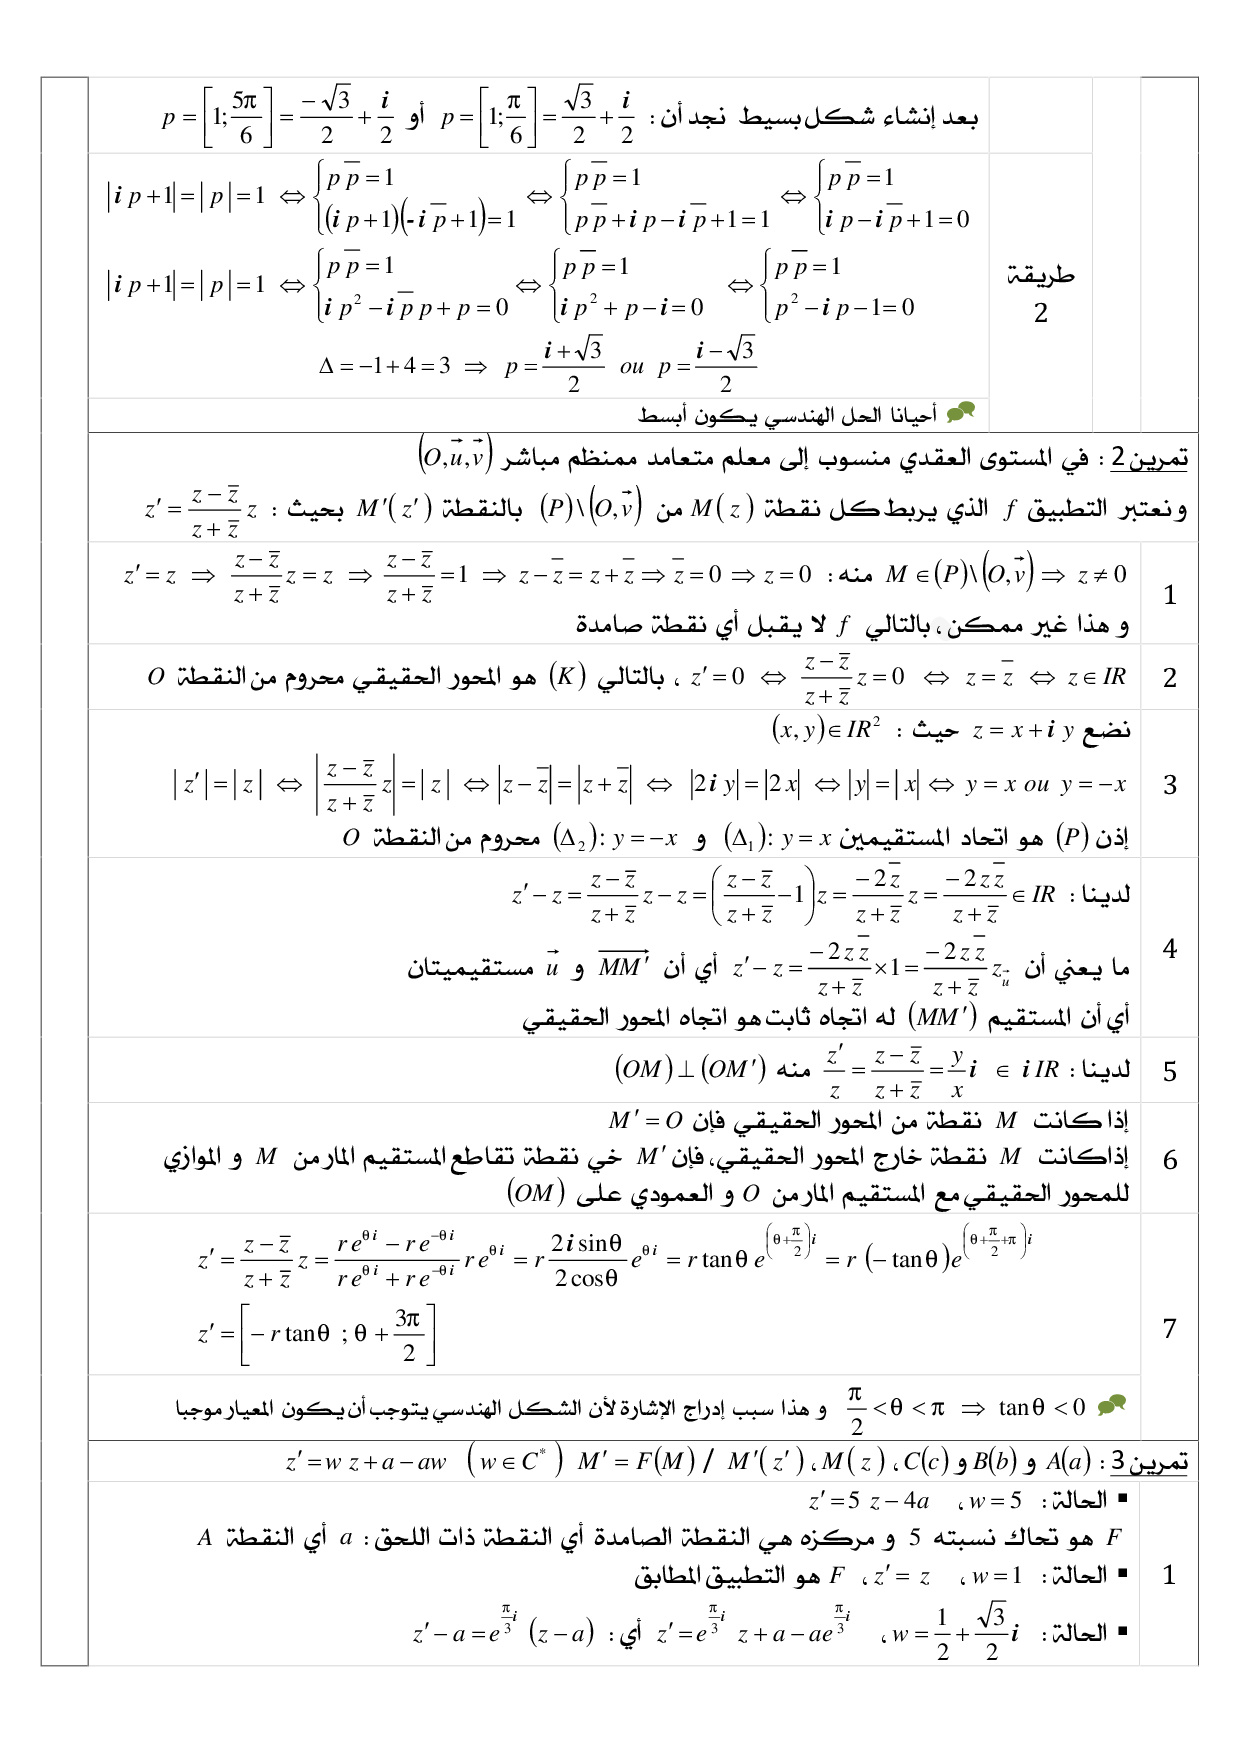 بعد إنشاء شكل بسيط نجد أن : p = [1; π/6] = √3/2 + i/2 أو p = [1; 5π/6] = −√3/2 + i/2
طريقة 2
|i p+1| = |p| = 1 ⇔ { p p̄ = 1 ; (i p+1)(-i p̄+1) = 1 ⇔ { p p̄ = 1 ; p p̄ + i p − i p̄ + 1 = 1 ⇔ { p p̄ = 1 ; i p − i p̄ + 1 = 0
|i p+1| = |p| = 1 ⇔ { p p̄ = 1 ; i p² − i p̄ p + p = 0 ⇔ { p p̄ = 1 ; i p² + p − i = 0 ⇔ { p p̄ = 1 ; p² − i p − 1 = 0
Δ = −1 + 4 = 3 ⇒ p = (i + √3)/2 ou p = (i − √3)/2
أحيانا الحل الهندسي يكون أبسط
تمرين2 : في المستوى العقدي منسوب إلى معلم متعامد ممنظم مباشر (O, u⃗, v⃗)
ونعتبر التطبيق f الذي يربط كل نقطة M(z) من (P)\(O, v⃗) بالنقطة M′(z′) بحيث : z′ = (z − z̄)/(z + z̄) z
1
M ∈ (P)\(O, v⃗) ⇒ z ≠ 0 منه : z′ = z ⇒ (z − z̄)/(z + z̄) z = z ⇒ (z − z̄)/(z + z̄) = 1 ⇒ z − z̄ = z + z̄ ⇒ z̄ = 0 ⇒ z = 0
و هذا غير ممكن، بالتالي f لا يقبل أي نقطة صامدة
2
z′ = 0 ⇔ (z − z̄)/(z + z̄) z = 0 ⇔ z = z̄ ⇔ z ∈ IR ، بالتالي (K) هو المحور الحقيقي محروم من النقطة O
3
نضع z = x + i y حيث : (x, y) ∈ IR²
|z′| = |z| ⇔ |(z − z̄)/(z + z̄) z| = |z| ⇔ |z − z̄| = |z + z̄| ⇔ |2i y| = |2x| ⇔ |y| = |x| ⇔ y = x ou y = −x
إذن (P) هو اتحاد المستقيمين (Δ₁): y = x و (Δ₂): y = −x محروم من النقطة O
4
لدينا : z′ − z = (z − z̄)/(z + z̄) z − z = ((z − z̄)/(z + z̄) − 1) z = (−2z̄)/(z + z̄) z = (−2z z̄)/(z + z̄) ∈ IR
ما يعني أن z′ − z = (−2z z̄)/(z + z̄) × 1 = (−2z z̄)/(z + z̄) z_u⃗ أي أن MM′ و u⃗ مستقيميتان
أي أن المستقيم (MM′) له اتجاه ثابت هو اتجاه المحور الحقيقي
5
لدينا : z′/z = (z − z̄)/(z + z̄) = y/x i ∈ i IR منه (OM) ⊥ (OM′)
6
إذا كانت M نقطة من المحور الحقيقي فإن M′ = O
إذا كانت M نقطة خارج المحور الحقيقي، فإن M′ خي نقطة تقاطع المستقيم المار من M و الموازي
للمحور الحقيقي مع المستقيم المار من O و العمودي على (OM)
7
z′ = (z − z̄)/(z + z̄) z = (r e^{θi} − r e^{−θi})/(r e^{θi} + r e^{−θi}) r e^{θi} = r (2i sinθ)/(2 cosθ) e^{θi} = r tanθ e^{(θ+π/2)i} = r (−tanθ) e^{(θ+π/2+π)i}
z′ = [−r tanθ ; θ + 3π/2]
π/2 < θ < π ⇒ tanθ < 0 و هذا سبب إدراج الإشارة لأن الشكل الهندسي يتوجب أن يكون المعيار موجبا
تمرين3 : A(a) و B(b) و C(c)، M(z)، M′(z′) / M′ = F(M) (w ∈ C*) z′ = w z + a − aw
1
▪ الحالة : w = 5 ، z′ = 5 z − 4a
F هو تحاك نسبته 5 و مركزه هي النقطة الصامدة أي النقطة ذات اللحق : a أي النقطة A
▪ الحالة : w = 1 ، z′ = z ، F هو التطبيق المطابق
▪ الحالة : w = 1/2 + √3/2 i ، z′ = e^{π/3 i} z + a − ae^{π/3 i} أي : z′ − a = e^{π/3 i} (z − a)